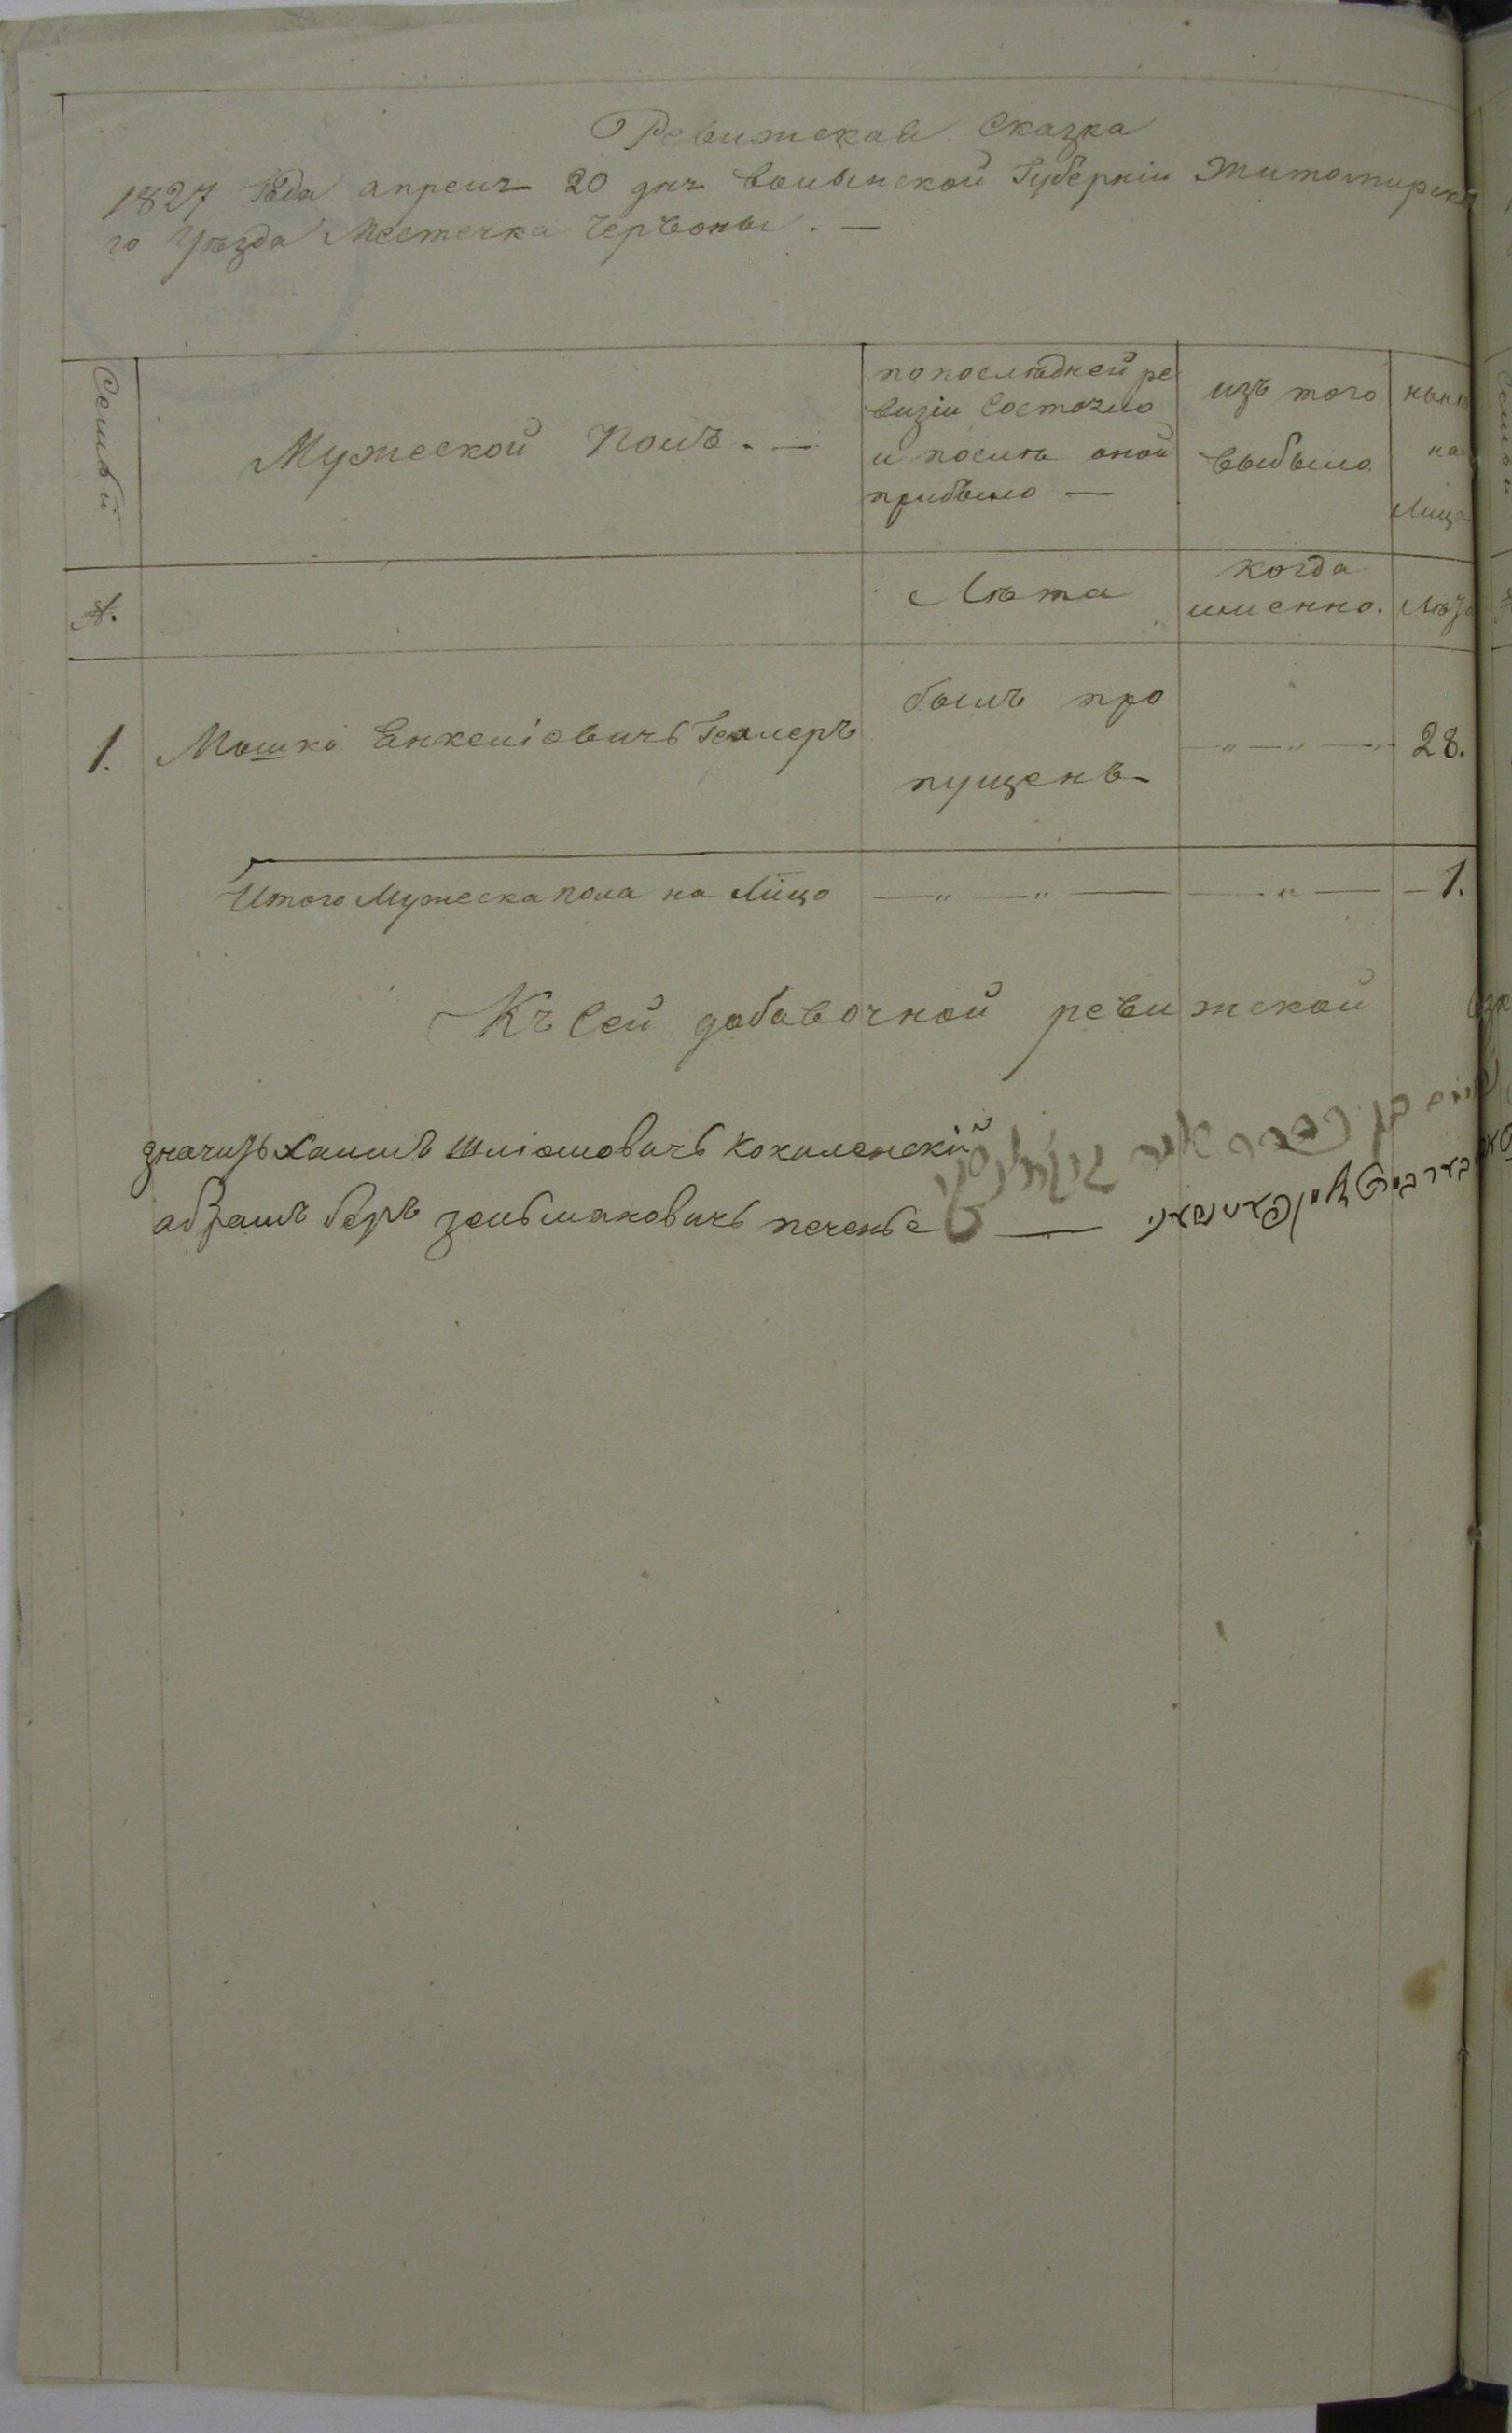 Ревижская Сказка
1827 Года апреля 20 дня Волынской Губерніи Житомирска
го Уѣзда Местечка Червоны. —
Семьи
Мужеской Полъ. —
по послѣдней ре
визіи Состояло
и послѣ оной
прибыло —
изъ того
выбыло
нынѣ
на
Лицо
№.
Лѣта
когда
именно.
Лѣта
1. Мошко Енкеліовичъ Геллеръ
былъ про
пущенъ
28.
Итого Мужеска пола на Лицо — 1.
Къ Сей добавочной ревижской
Хаимъ Шліомовичъ
абрамъ беръ зельмановичъ печенье